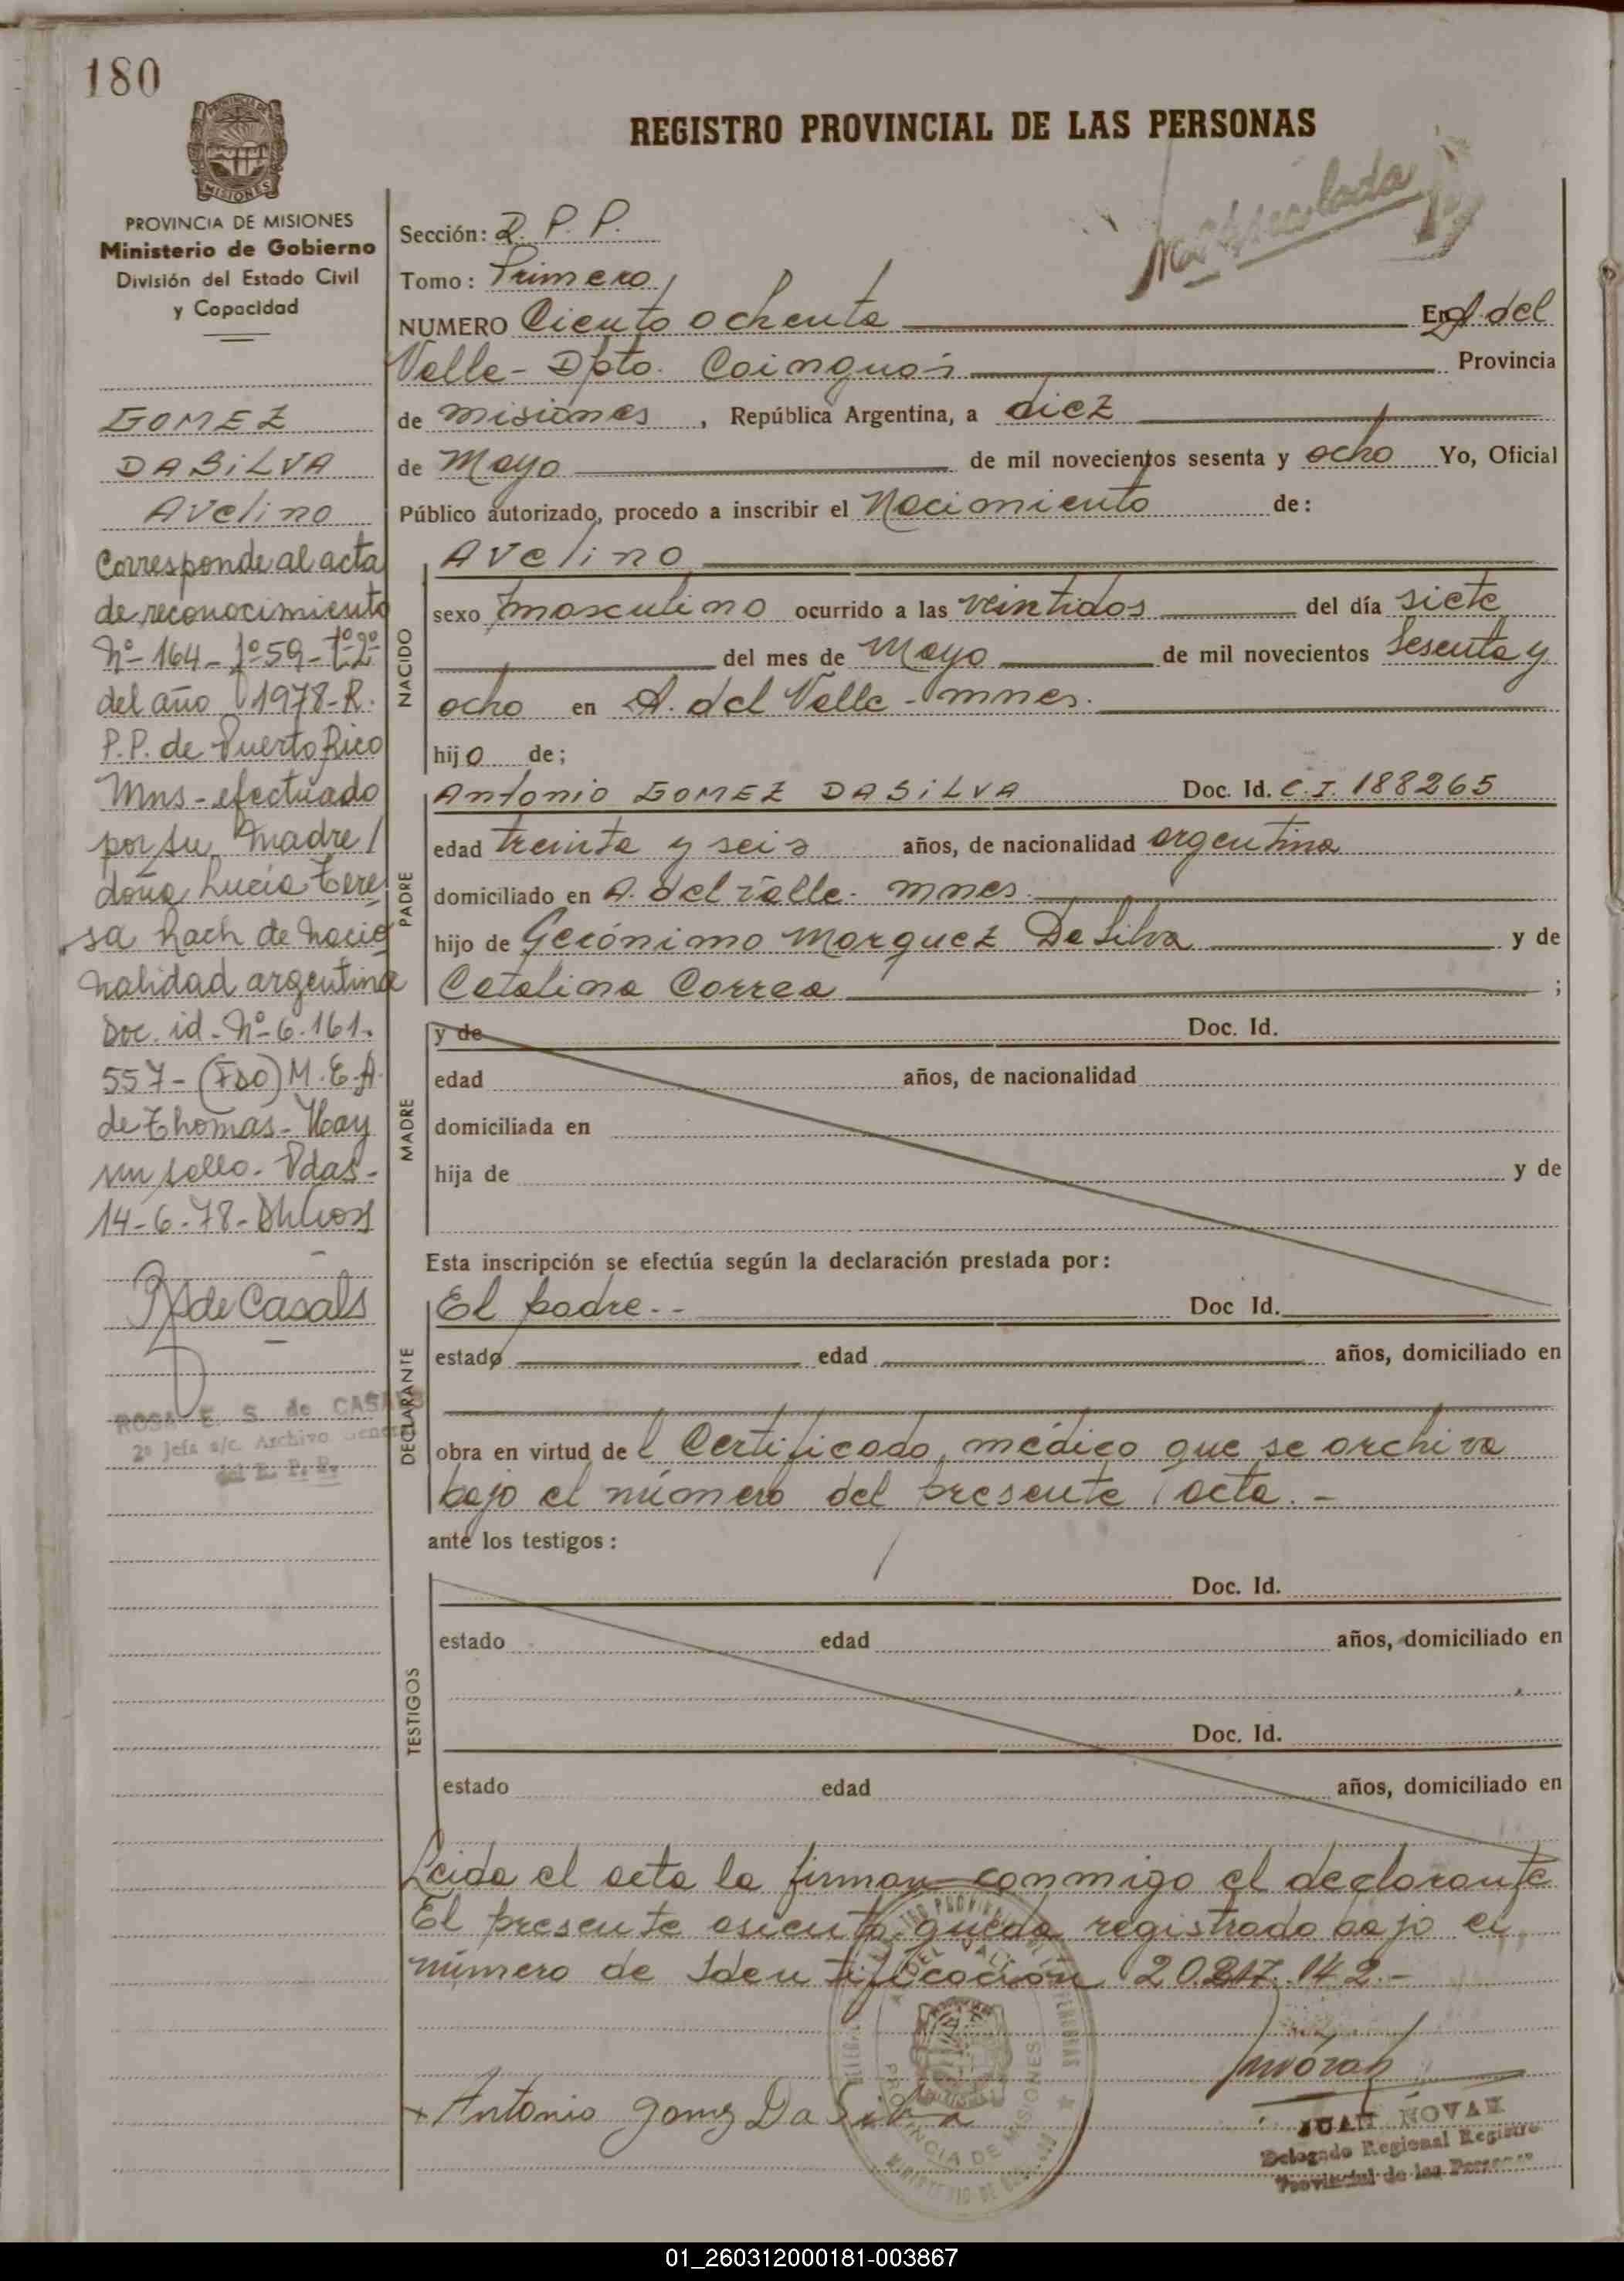 180
PROVINCIA DE
MISIONES
PROVINCIA DE MISIONES
Ministerio de Gobierno
División del Estado Civil
y Capacidad
GOMEZ
DASILVA
Avelino
Corresponde al acta
de reconocimiento
Nº 164 - fº 59 - tº 2º
del año 1978 - R.
P.P. de Puerto Rico
Mns - efectuado
por su madre /
doña Lucía Tere
sa Rach de nacio
nalidad argentina
Doc. id - Nº 6.161.
557 - (FDO) M. E. A.
de Thomas - Hay
un sello - Pdas -
14-6-78 -
de Casals
ROSA E. S. de CASALS
2ª Jefa a/c. Archivo General
del R. P. P.
REGISTRO PROVINCIAL DE LAS PERSONAS
Matriculado
Sección: R. P. P.
Tomo: Primero
NUMERO Ciento ochenta En A. del
Valle - Dpto. Cainguás Provincia
de misiones, República Argentina, a diez
de Mayo de mil novecientos sesenta y ocho Yo, Oficial
Público autorizado, procedo a inscribir el Nacimiento de:
NACIDO
Avelino
sexo masculino ocurrido a las veintidos del día siete
del mes de Mayo de mil novecientos sesenta y
ocho en A. del Valle - mnes.
hijo de;
PADRE
Antonio GOMEZ DASILVA Doc. Id. C.I. 188265
edad treinta y seis años, de nacionalidad argentina
domiciliado en A. del Valle - mnes.
hijo de Gerónimo Marquez Da Silva y de
Catalina Correa ;
MADRE
y de Doc. Id.
edad años, de nacionalidad
domiciliada en
hija de y de
Esta inscripción se efectúa según la declaración prestada por:
DECLARANTE
El padre.-- Doc Id.
estado edad años, domiciliado en
obra en virtud del Certificado médico que se archiva
bajo el número del presente acta. -
ante los testigos:
TESTIGOS
Doc. Id.
estado edad años, domiciliado en
Doc. Id.
estado edad años, domiciliado en
Leida el acta la firman conmigo el declarante
El presente asiento queda registrado bajo el
número de Identificación 20.217.142.-
+ Antonio Gomez Da Silva
JUAN NOVAK
Delegado Regional Registro
Provincial de las Personas
PROVINCIA DE MISIONES
01_260312000181-003867